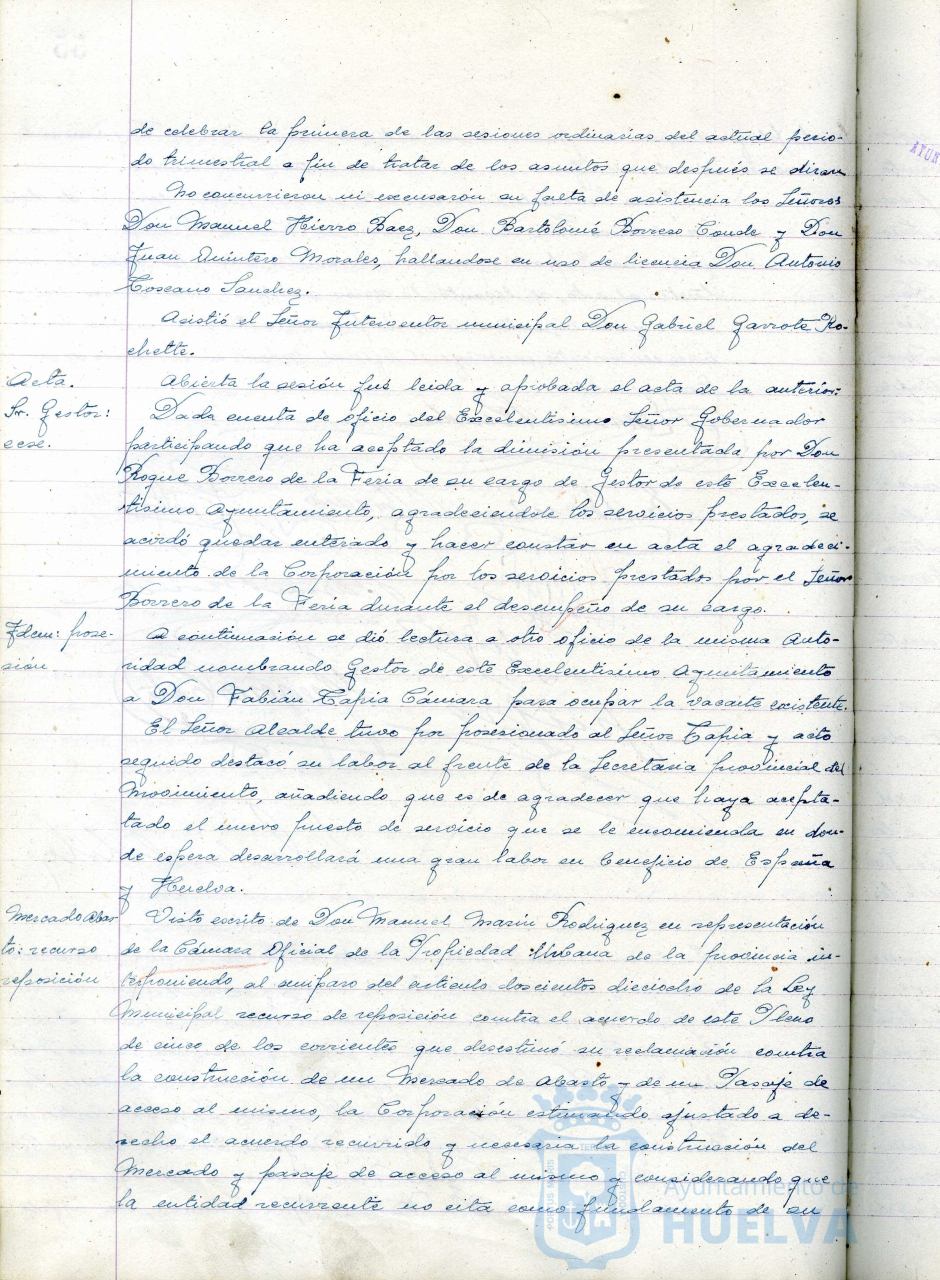 de celebrar la primera de las sesiones ordinarias del actual perio-
do trimestral a fin de tratar de los asuntos que después se diran
No concurrieron ni excusarón su falta de asistencia los Señores
Don Manuel Hierro Baez, Don Bartolomé Borrero Conde y Don
Juan Quintero Morales, hallandose en uso de licencia Don Antonio
Toscano Sanchez.
Asistió el Señor Interventor municipal Don Gabriel Garrote Ro-
chette.
Acta.
Abierta la sesión fué leida y aprobada el acta de la anterior.
Sr. Gestor:
cese.
Dada cuenta de oficio del Excelentisimo Señor Gobernador
participando que ha aceptado la dimisión presentada por Don
Roque Borrero de la Feria de su cargo de Gestor de este Excelen-
tisimo Ayuntamiento, agradeciendole los servicios prestados, se
acordó quedar enterado y hacer constar en acta el agradeci-
miento de la Corporación por los servicios prestados por el Señor
Borrero de la Feria durante el desempeño de su cargo.
Idem: pose-
sión.
A continuación se dió lectura a otro oficio de la misma Auto-
ridad nombrando Gestor de este Excelentisimo Ayuntamiento
a Don Fabián Tapia Cámara para ocupar la vacante existente.
El Señor Alcalde tuvo por posesionado al Señor Tapia y acto
seguido destacó su labor al frente de la Secretaria provincial del
Movimiento, añadiendo que es de agradecer que haya acepta-
tado el nuevo puesto de servicio que se le encomienda en don-
de espera desarrollará una gran labor en beneficio de España
y Huelva.
Mercado Abas
to: recurso
reposición
Visto escrito de Don Manuel Marin Rodriguez en representación
de la Cámara Oficial de la Propiedad Urbana de la provincia in-
terponiendo, al amparo del articulo doscientos dieciocho de la Ley
Municipal recurso de reposición contra el acuerdo de este Pleno
de cinco de los corrientes que desestimó su reclamación contra
la construcción de un Mercado de Abasto y de un Pasaje de
acceso al mismo, la Corporación estimando ajustado a de-
recho el acuerdo recurrido y necesaria la construcción del
Mercado y pasaje de acceso al mismo y considerando que
la entidad recurrente no cita como fundamento de su
Ayuntamiento de
HUELVA